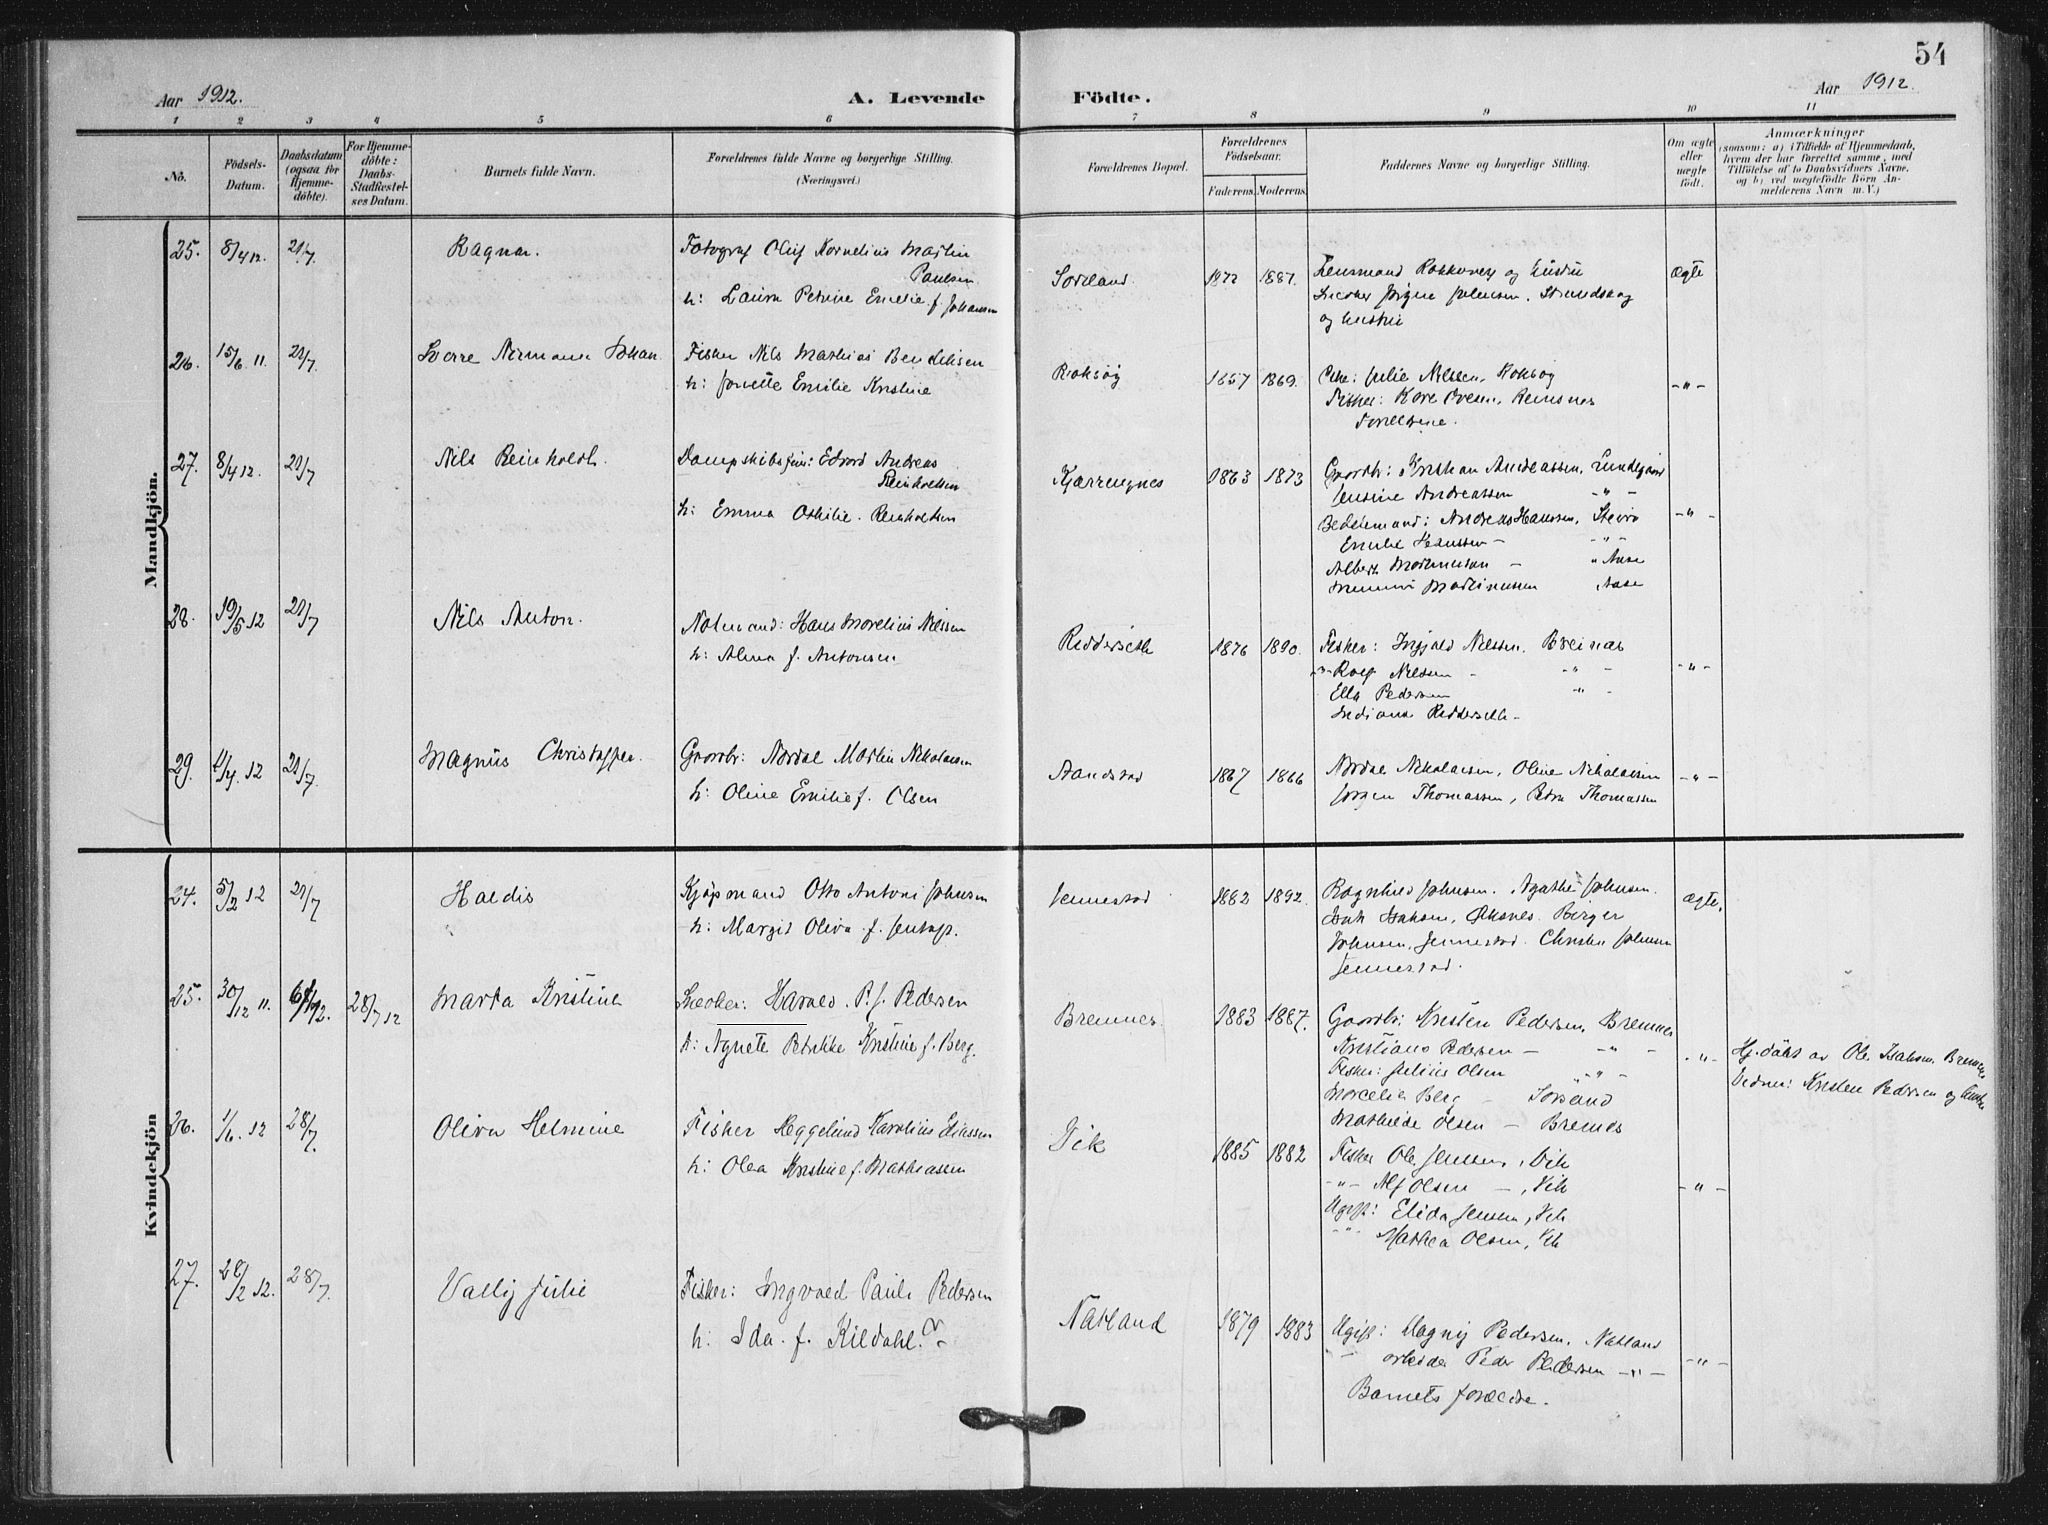 54
Aar 1912.
A. Levende
Födte.
Aar 1912
1 2 3 4 5 6 7 8 9 10 11
No.
Födsels-
Datum.
Daabsdatum
(ogsaa for
Hjemme-
döbte).
For Hjemme-
döbte:
Daabs-
Stadfæstel-
ses Datum.
Barnets fulde Navn.
Forældrenes fulde Navne og borgerlige Stilling.
(Næringsvei.)
Forældrenes Bopæl.
Forældrenes
Födselsaar.
Faderens. Moderens.
Faddernes Navne og borgerlige Stilling.
Om ægte
eller
uægte
födt.
Anmærkninger
(saasom: a) i Tilfælde af Hjemmedaab,
hvem der har forrettet samme, med
Tilföielse af to Daabsvidners Navne,
og b) ved uægtefödte Börn An-
melderens Navn m. V.)
Mandkjön.
25. 8/4 12. 21/7. Ragnar. Fotograf Oluf Kornelius Martin
Paulsen
h: Laura Petrine Emelie f. Johansen
Sortland 1872 1887.
og hustru
og hustru
Ægte
26. 15/6 11. 21/7. Sverre Nirmann Johan Fisker Nils Mathias Bendiksen
h: Jonette Emilie Kristine
Roksøy 1857 1869. Enke: Julie Nilssen, Roksøy
Fisker: Kore Ovesen, Reinsnes
Forældrene.
-"-
27. 8/4 12. 21/7 Nils Reinholdt. Dampskibsfører: Edvard Andreas
Reinholtsen
h: Emma Othilie. Reinholtsen
Kjærringnes 1863 1873 Gaardbr: Kristian Andreassen, Lundegaard
Jensine Andreassen -"-
Andreas Hanssen,
Emilie Hanssen - -"-
Albert Martinussen - " Aase
Martinussen Aase
-"-
28. 19/5 12 21/7 Nils Anton. Notmand: Hans Morelius Nilssen
h: Alma f. Antonsen
Reddersetle 1876 1890. Fisker: Ingvald Nilssen, Breinas
-"- Rolf Nilsen - " -
Ella Pedersen " -
Indiana Reddersetle -
-"-
29. 4/4. 12 21/7. Magnus Christoffer. Gaardbr: Nordal Martin Nikolaisen
h: Oline Emilie f. Olsen
Sandstad 1867 1866 Nordal Nikolaisen, Oline Nikolaisen
Jørgen Thomassen, Petra Thomassen
-"-
Kvindekjön
24. 5/2 12 21/7 Haldis Kjøpmand Otto Antoni Johnsen
h: Margit Oliva f. Jentoft.
Jennestad 1882 1892. Ragnhild Johnsen. Agathe Johnsen.
Isak Isaksen, Øksnes. Birger
Johnsen, Jennestad. Christen Johnsen
Jennestad.
ægte.
25. 30/12 11. 28/7 12 Marta Kristine Snedker: Harald P. J. Pedersen
h: Agnete Petrikke Kristine f. Berg.
Bremnes. 1883 1887. Gaardbr: Kristen Pedersen, Bremnes
Kristiane Pedersen - -"-
Fisker: Julius Olsen -"-
Marcelia Berg - Sorsand
Mathilde Olsen - Bremnes
-"-
Hj. døbt av Ole Isaksen, Bremnes
Vidner: Kristen Pedersen og hustru
26. 1/6. 12 28/7. Oliva Helmine Fisker Heggelund Karolius Eliassen
h: Olea Kristine f. Mathiassen
Vik 1885 1882 Fisker Ole Jenssen, Vik
-"- Alf Olsen - , Vik
Ugift: Elida Jensen, Vik
"" Mathea Olsen, Vik
-"-
27. 28/2 12. 28/7. Vally Julie Fisker: Ingvald Paul Pedersen
h: Ida f. Kildahl.
Natland 1879 1883 Ugift: Magny Pedersen, Natland
- arbeider Peder Pedersen -"-
Barnets forældre.
-"-